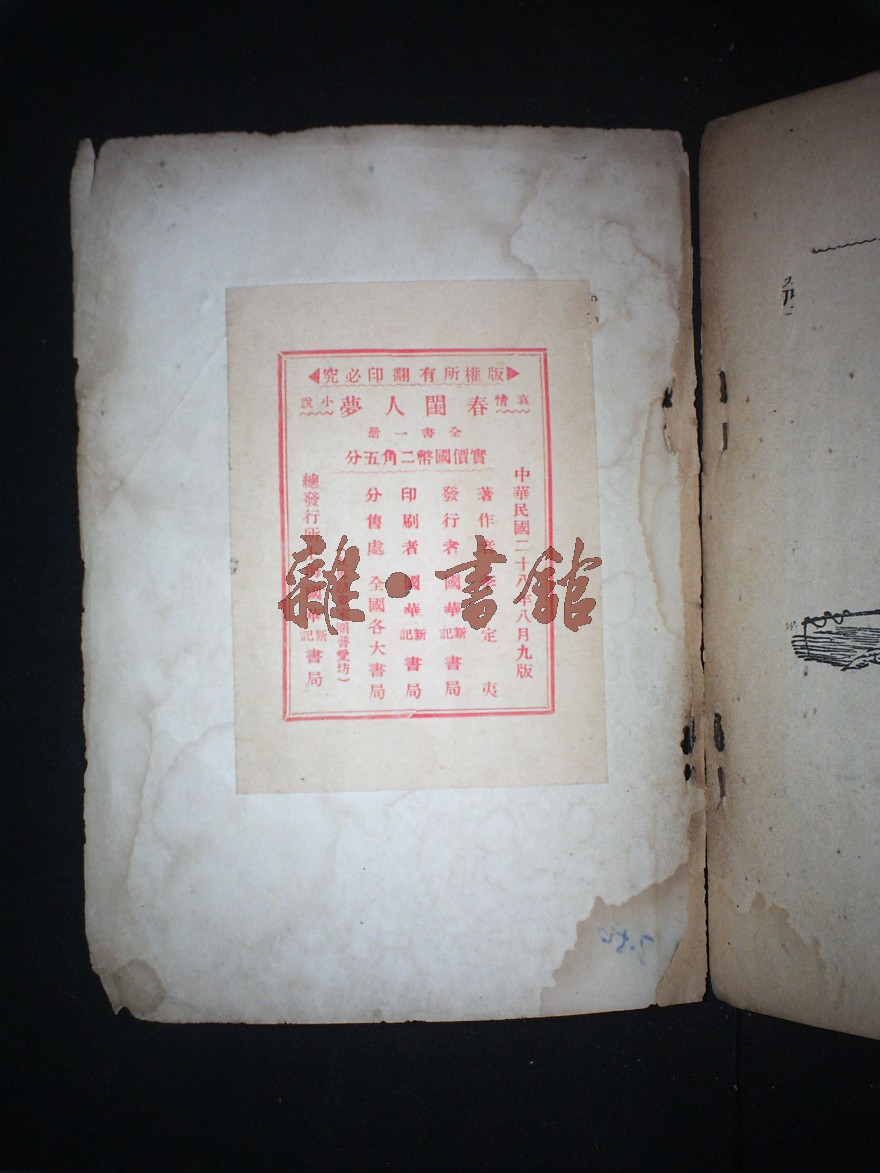 版權所有翻印必究
哀情 春閨人夢 小說
全書一册
實價國幣二角五分
中華民國二十八年八月九版
著作者 定夷
發行者 國華新記書局
印刷者 國華新記書局
分售處 全國各大書局
普愛坊）
總發行所 國華新記書局
雜·書館